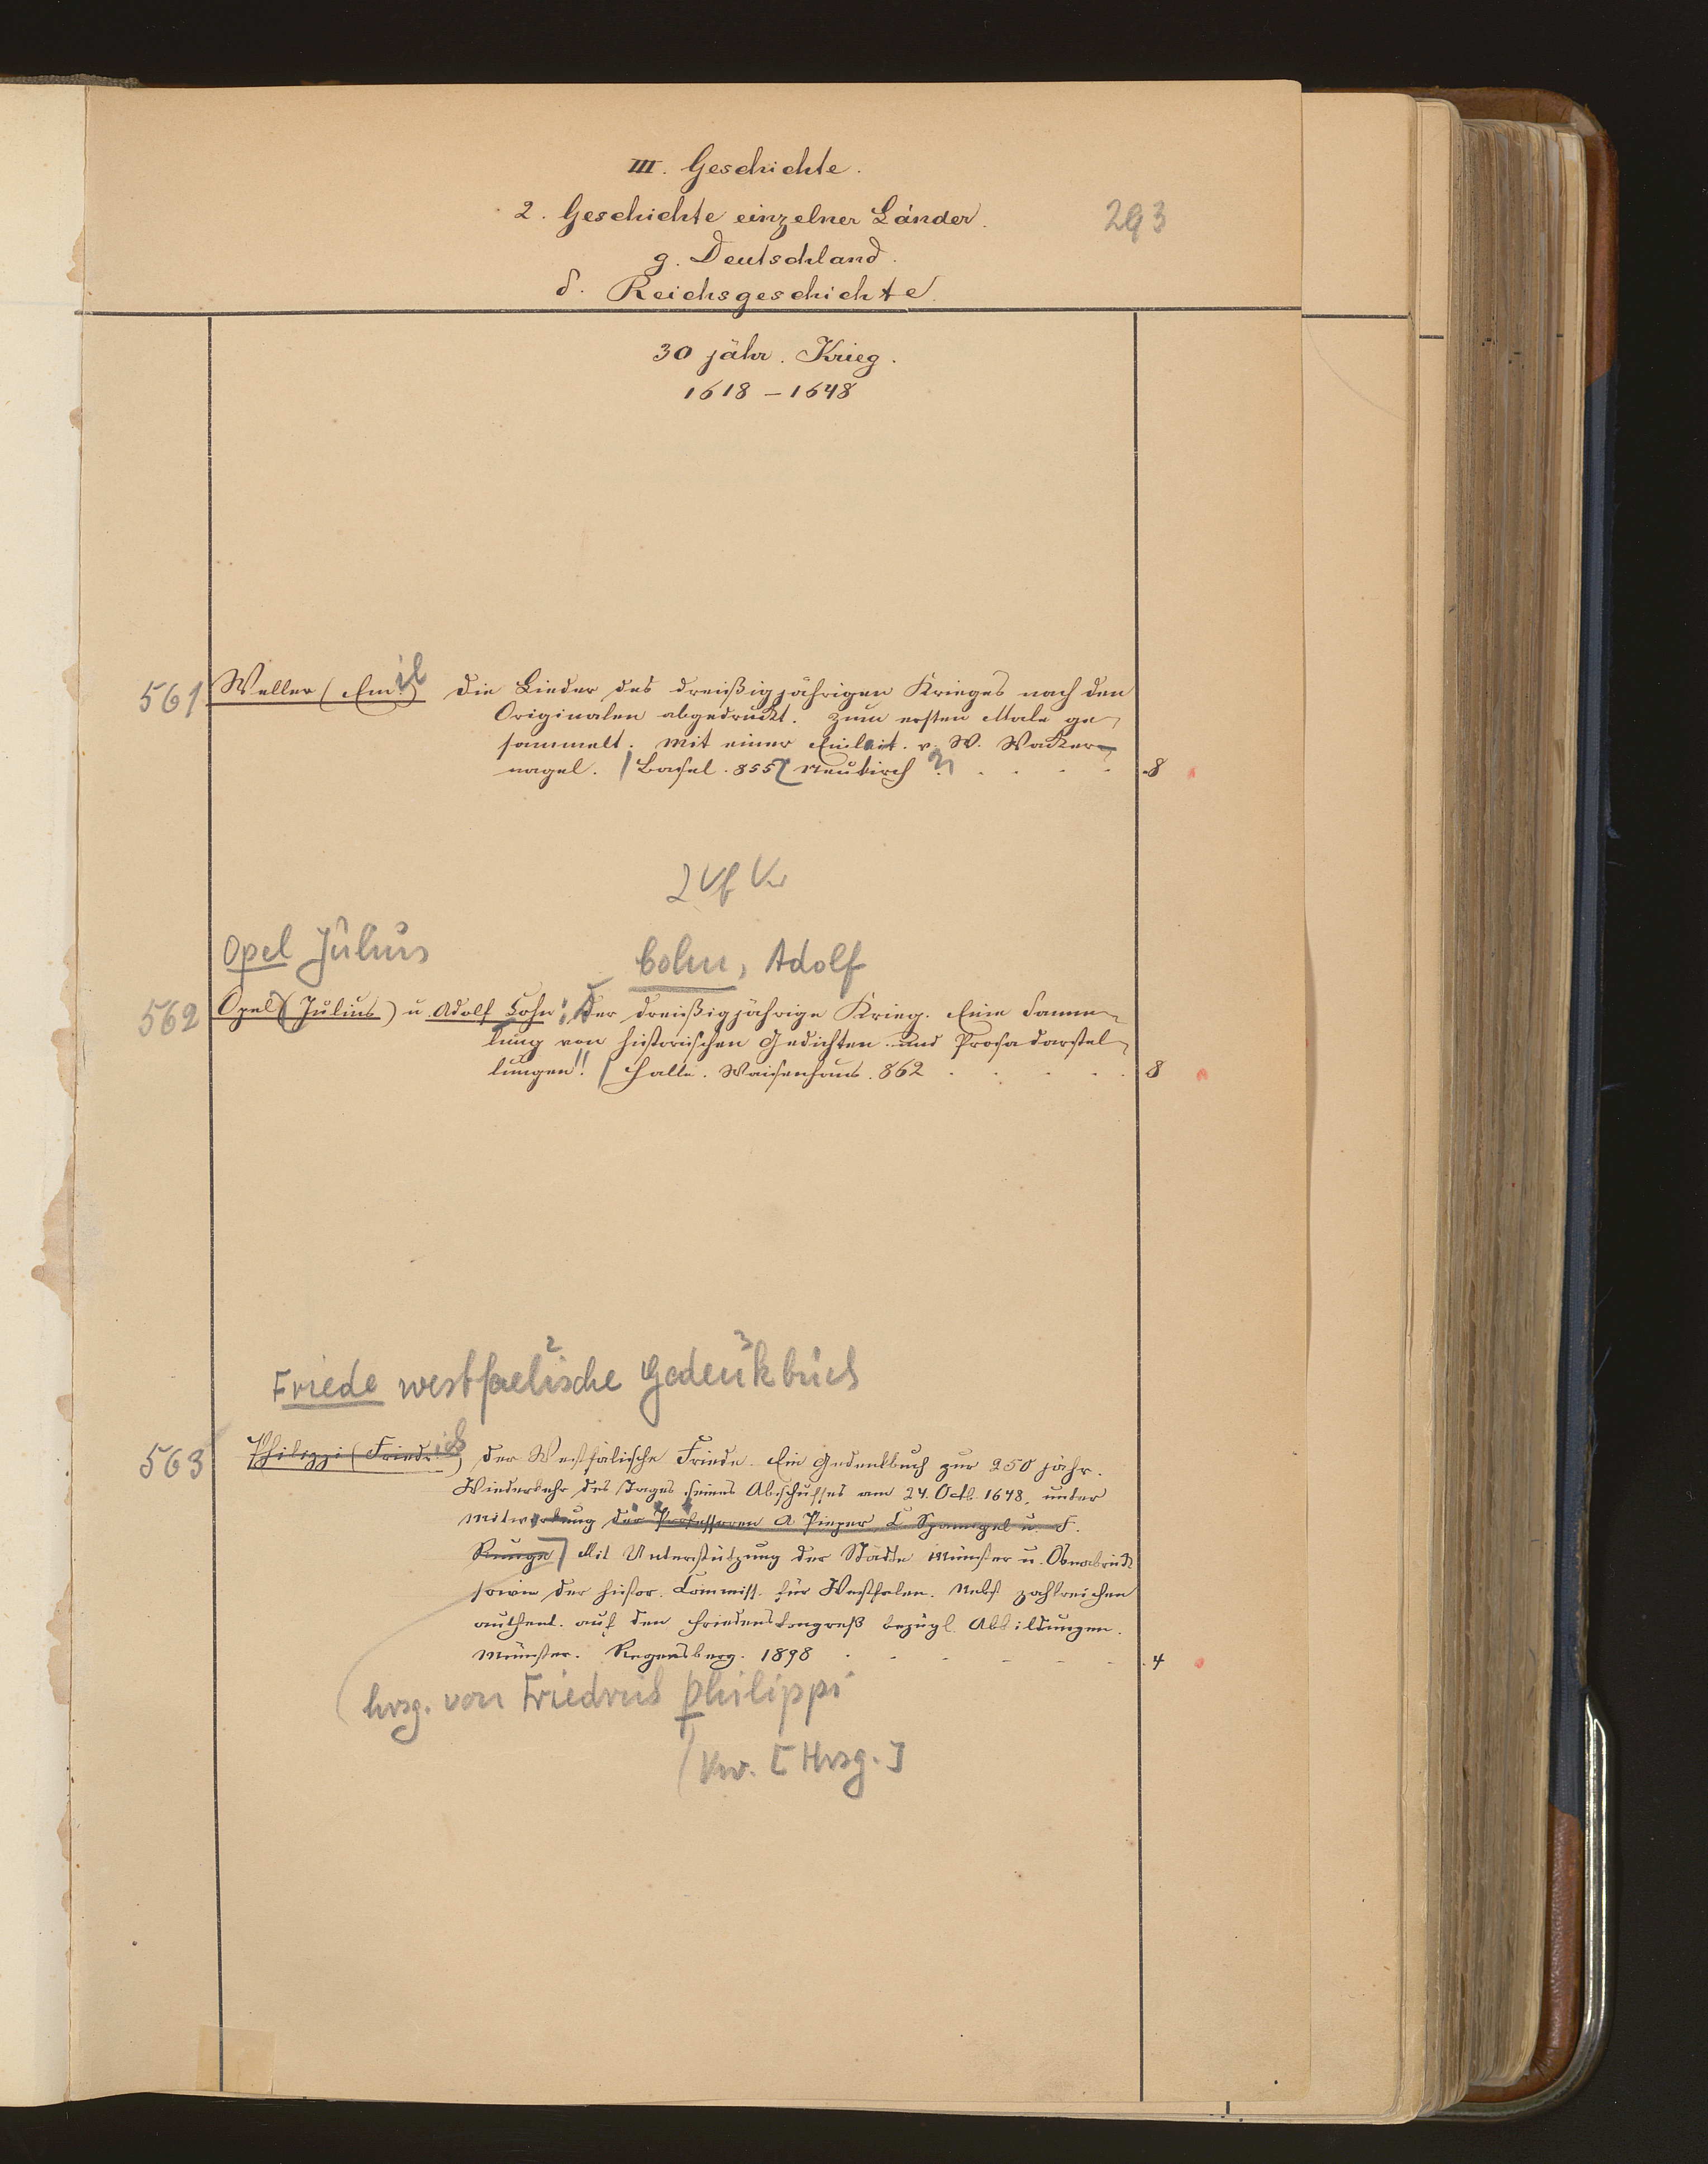 III. Geschichte.
2. Geschichte einzelner Länder.
293
g. Deutschland.
δ. Reichsgeschichte.
30 jähr. Krieg.
1618 – 1648
561 Weller (Emil) Die Lieder des dreißigjährigen Krieges nach den
Originalen abgedruckt. Zum ersten Male ge-
sammelt. Mit einer Einleit. v. W. Wacker-
nagel. / Basel. 855 Neukirch 8
2 Vf Vw
Opel Julius Cohn, Adolf
562 Opel (Julius) u. Adolf Cohn: Der dreißigjährige Krieg. Eine Samm-
lung von historischen Gedichten und Prosadarstel-
lungen!! / Halle. Waisenhaus. 862 8
2 3
Friede westfaelische Gedenkbuch
563 Philippi (Friedrich) Der Westfälische Friede. Ein Gedenkbuch zur 250 jähr.
Wiederkehr des Tages seines Abschusses am 24. Octb. 1648, unter
Mitwirkung der Professoren A Pieper, C Spannagel u. F.
Runge] Mit Unterstützung der Städte Münster u. Osnabrück
sowie der histor. Commiss. für Westfalen. Nebst zahlreichen
authent. auf den Friedenskongreß bezügl. Abbildungen.
Münster. Regensberg. 1898 4
(hrsg. von Friedrich Philippi
(Vw. [Hrsg.]